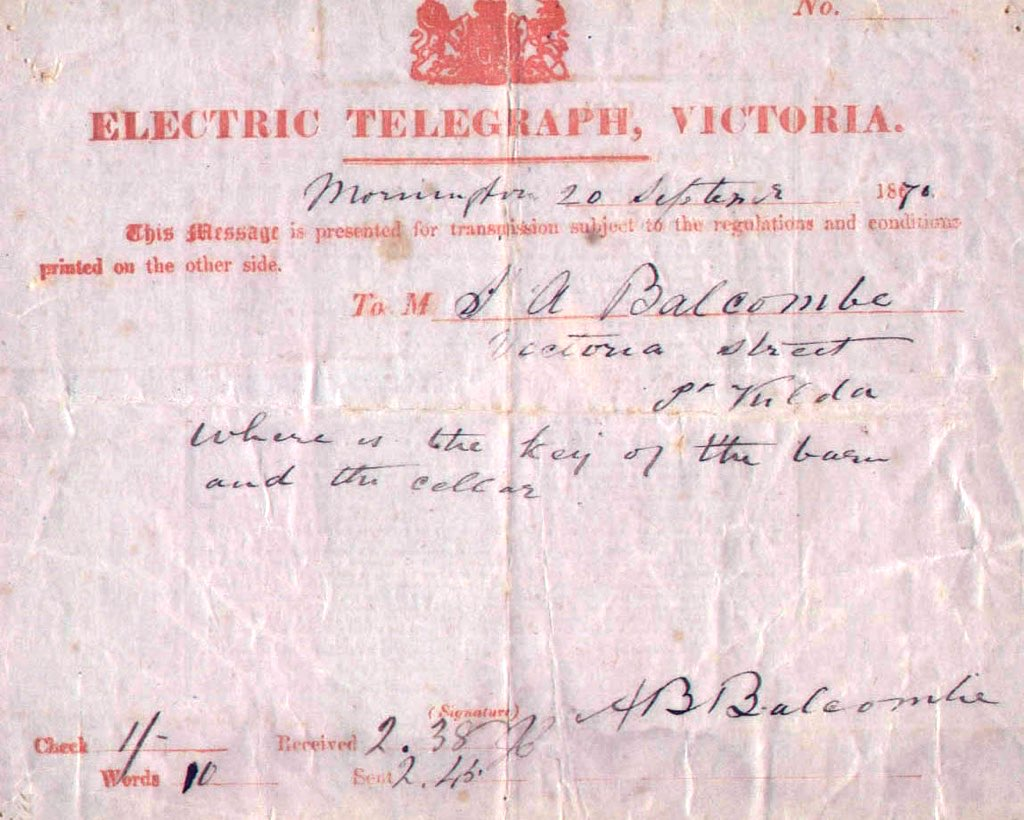 No.
ELECTRIC TELEGRAPH, VICTORIA.
Mornington 20 September 1870
This Message is presented for transmission subject to the regulations and conditions
printed on the other side.
To M A Balcombe
Victoria street
St Kilda
Where is the key of the barn
and the cellar
(Signature)
A B Balcombe
Check 1/- Received 2.38
Words 10 Sent 2.45